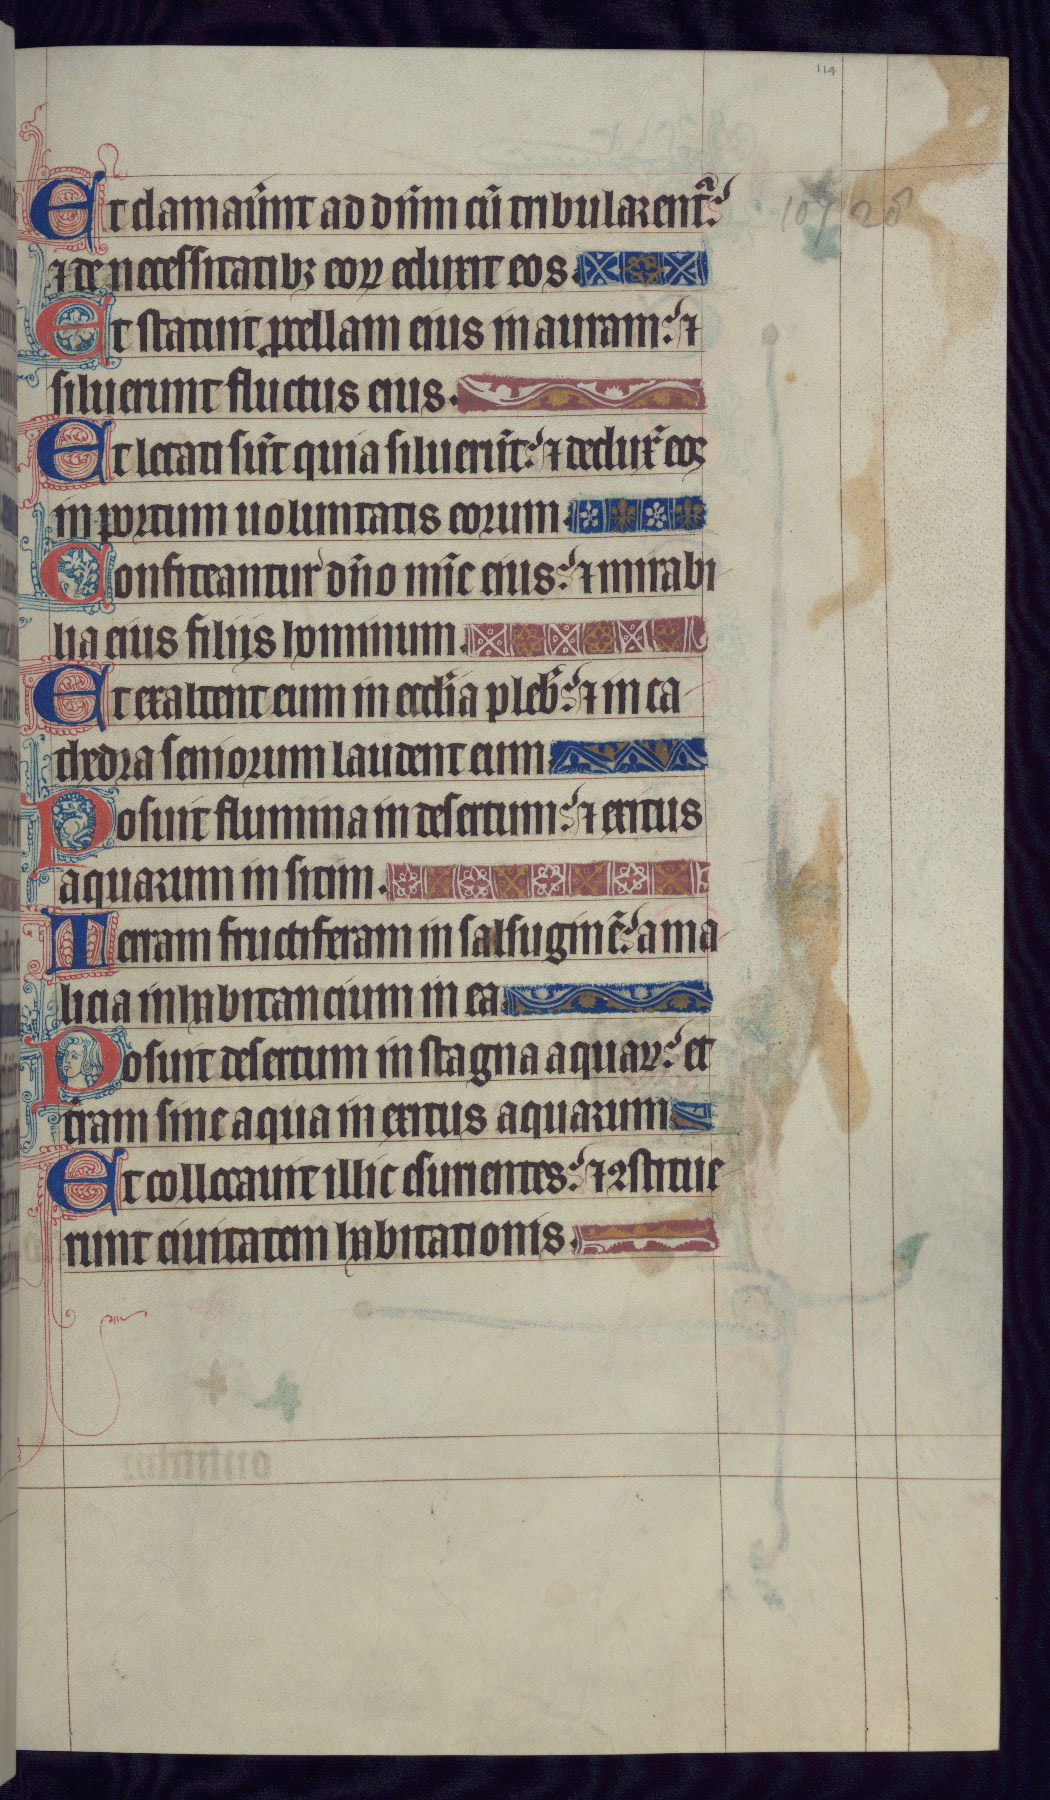 114
Et clamauͥnt ad dn̄m cū tribularentᷣ:
⁊ de necessitatibꝫ eoꝝ eduxit eos
Et statuit ꝓcellam eius in auram: ⁊
siluerunt fluctus eius.
Et letati sūt quia siluerūt: ⁊ dedux̄ eos
in portum uoluntatis eorum
Confiteantur dn̄o mīe eius: ⁊ mirabi
lia eius filijs hominum.
Et exaltent eum in eccl̄ia pleb̄: ⁊ in ca
thedra seniorum laudent eum
Posuit flumina in desertum: ⁊ exitus
aquarum in sitim.
Terram fructiferam in salsuginē: a ma
licia inhabitancium in ea
Posuit desertum in stagna aquaꝝ: et
t̄ram sine aqua in exitus aquarum
Et collocauit illic esurientes: ⁊ ꝯstitue
runt ciuitatem habitationis.